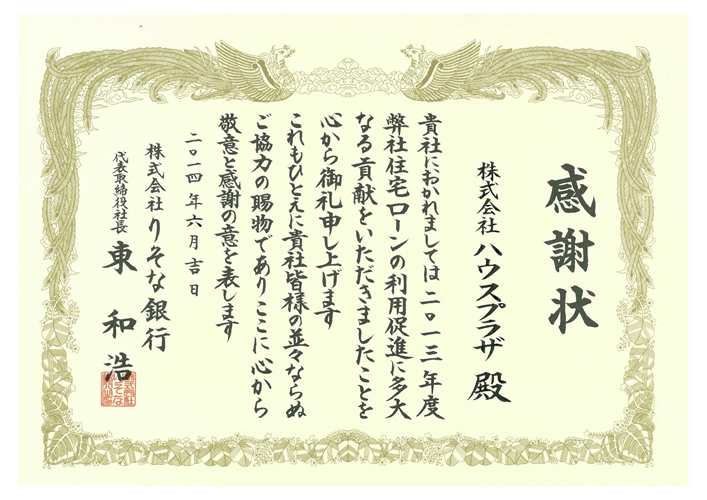 感謝状
株式会社 ハウスプラザ 殿
貴社におかれましては二〇一三年度
弊社住宅ローンの利用促進に多大
なる貢献をいただきましたことを
心から御礼申し上げます
これもひとえに貴社皆様の並々ならぬ
ご協力の賜物でありここに心から
敬意と感謝の意を表します
二〇一四年六月吉日
株式会社りそな銀行
代表取締役社長 東 和浩